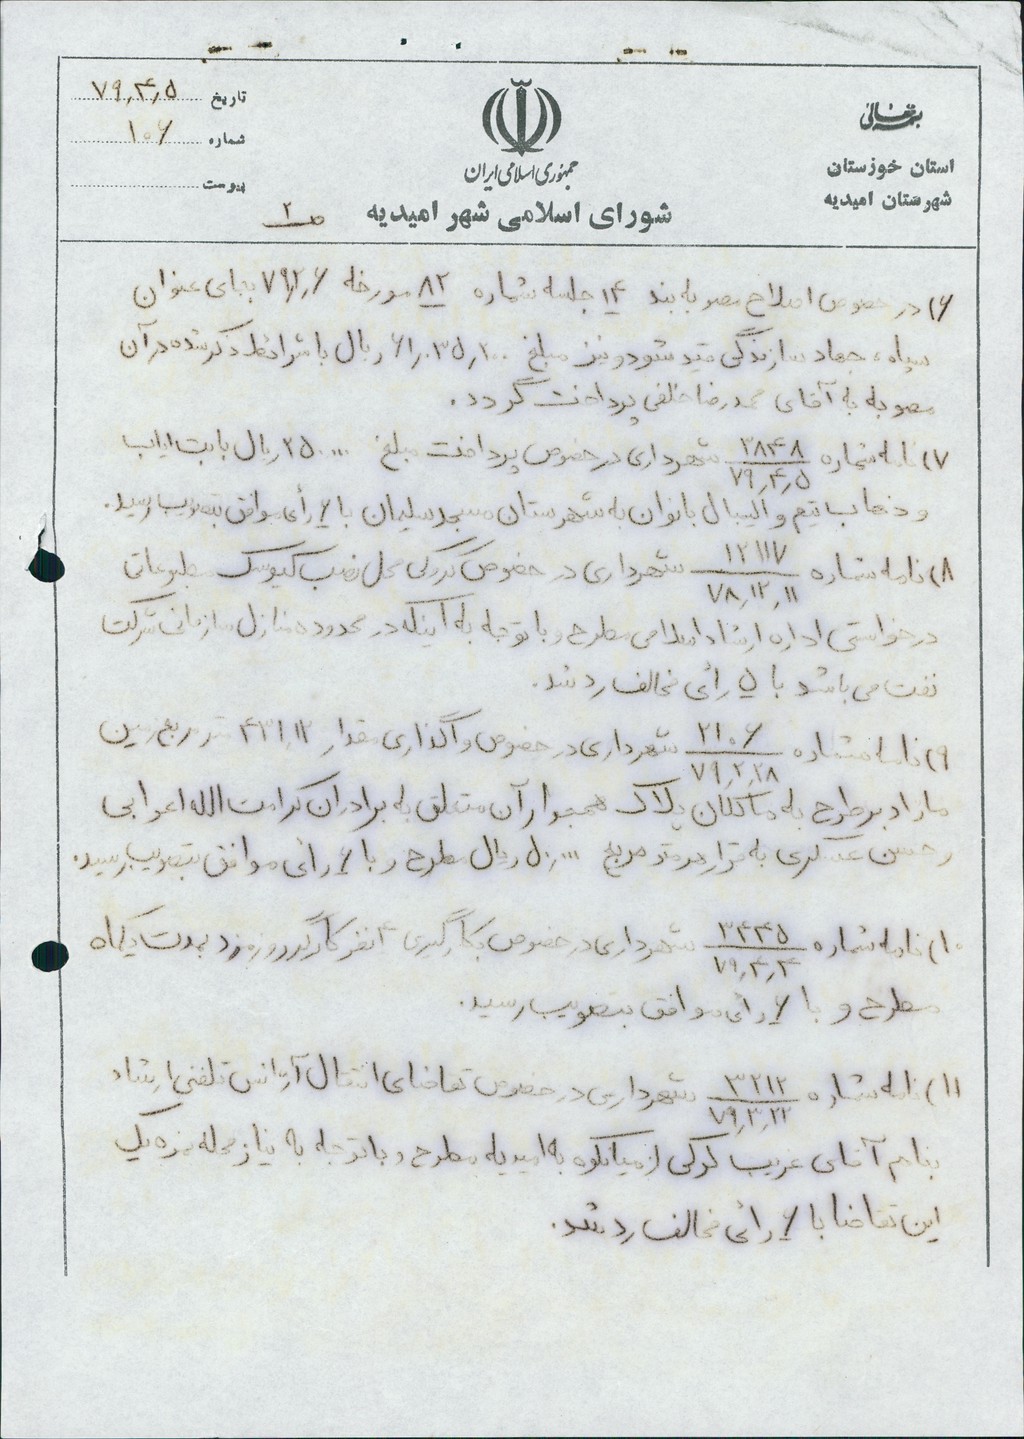 بسمه تعالی
استان خوزستان
شهرستان امیدیه
جمهوری اسلامی ایران
شورای اسلامی شهر امیدیه
ص ۲
تاریخ ۷۹٫۴٫۵
شماره ۱۰۶
پیوست
۶) در خصوص اصلاح مصوبه بند ۱۴ جلسه شماره ۸۲ مورخه ۷۹٫۲٫۶ بجای عنوان
سپاه، جهاد سازندگی قید شود و نیز مبلغ ریال با شرائط ذکر شده در آن
مصوبه به آقای محمدرضا خلفی پرداخت گردد.
۷) نامه شماره ۳۸۴۸ / ۷۹٫۴٫۵ شهرداری در خصوص پرداخت مبلغ ۲۵۰۰۰۰ ریال بابت ایاب
و ذهاب تیم والیبال بانوان به شهرستان مسجدسلیمان با ۶ رأی موافق بتصویب رسید.
۸) نامه شماره ۱۲۱۱۷ / ۷۸٫۱۲٫۱۱ شهرداری در خصوص محل نصب کیوسک مطبوعاتی
درخواستی اداره ارشاد اسلامی مطرح و با توجه به اینکه در محدوده منازل سازمانی شرکت
نفت می باشد با ۵ رائی مخالف رد شد.
۹) نامه شماره ۲۱۰۶ / ۷۹٫۲٫۲۸ شهرداری در خصوص واگذاری مقدار ۴۳۱٫۱۲ متر مربع زمین
مازاد بر طرح به مالکان پلاک همجوار آن متعلق به برادران کرامت الله اعرابی
و حسن عسکری به قرار هر متر مربع ۵۰٫۰۰۰ ریال مطرح و با ۶ رائی موافق بتصویب رسید.
۱۰) نامه شماره ۳۴۴۵ / ۷۹٫۴٫۴ شهرداری در خصوص بکارگیری ۴ نفر کارگر روزمزد بمدت یکماه
مطرح و با ۶ رائی موافق بتصویب رسید.
۱۱) نامه شماره ۳۲۱۲ / ۷۹٫۳٫۲۲ شهرداری در خصوص تقاضای انتقال آژانس تلفنی ارشاد
بنام آقای غریب کرکی از میانکوه به امیدیه مطرح و با توجه به نیاز محله نمره یک
این تقاضا با ۶ رائی مخالف رد شد.